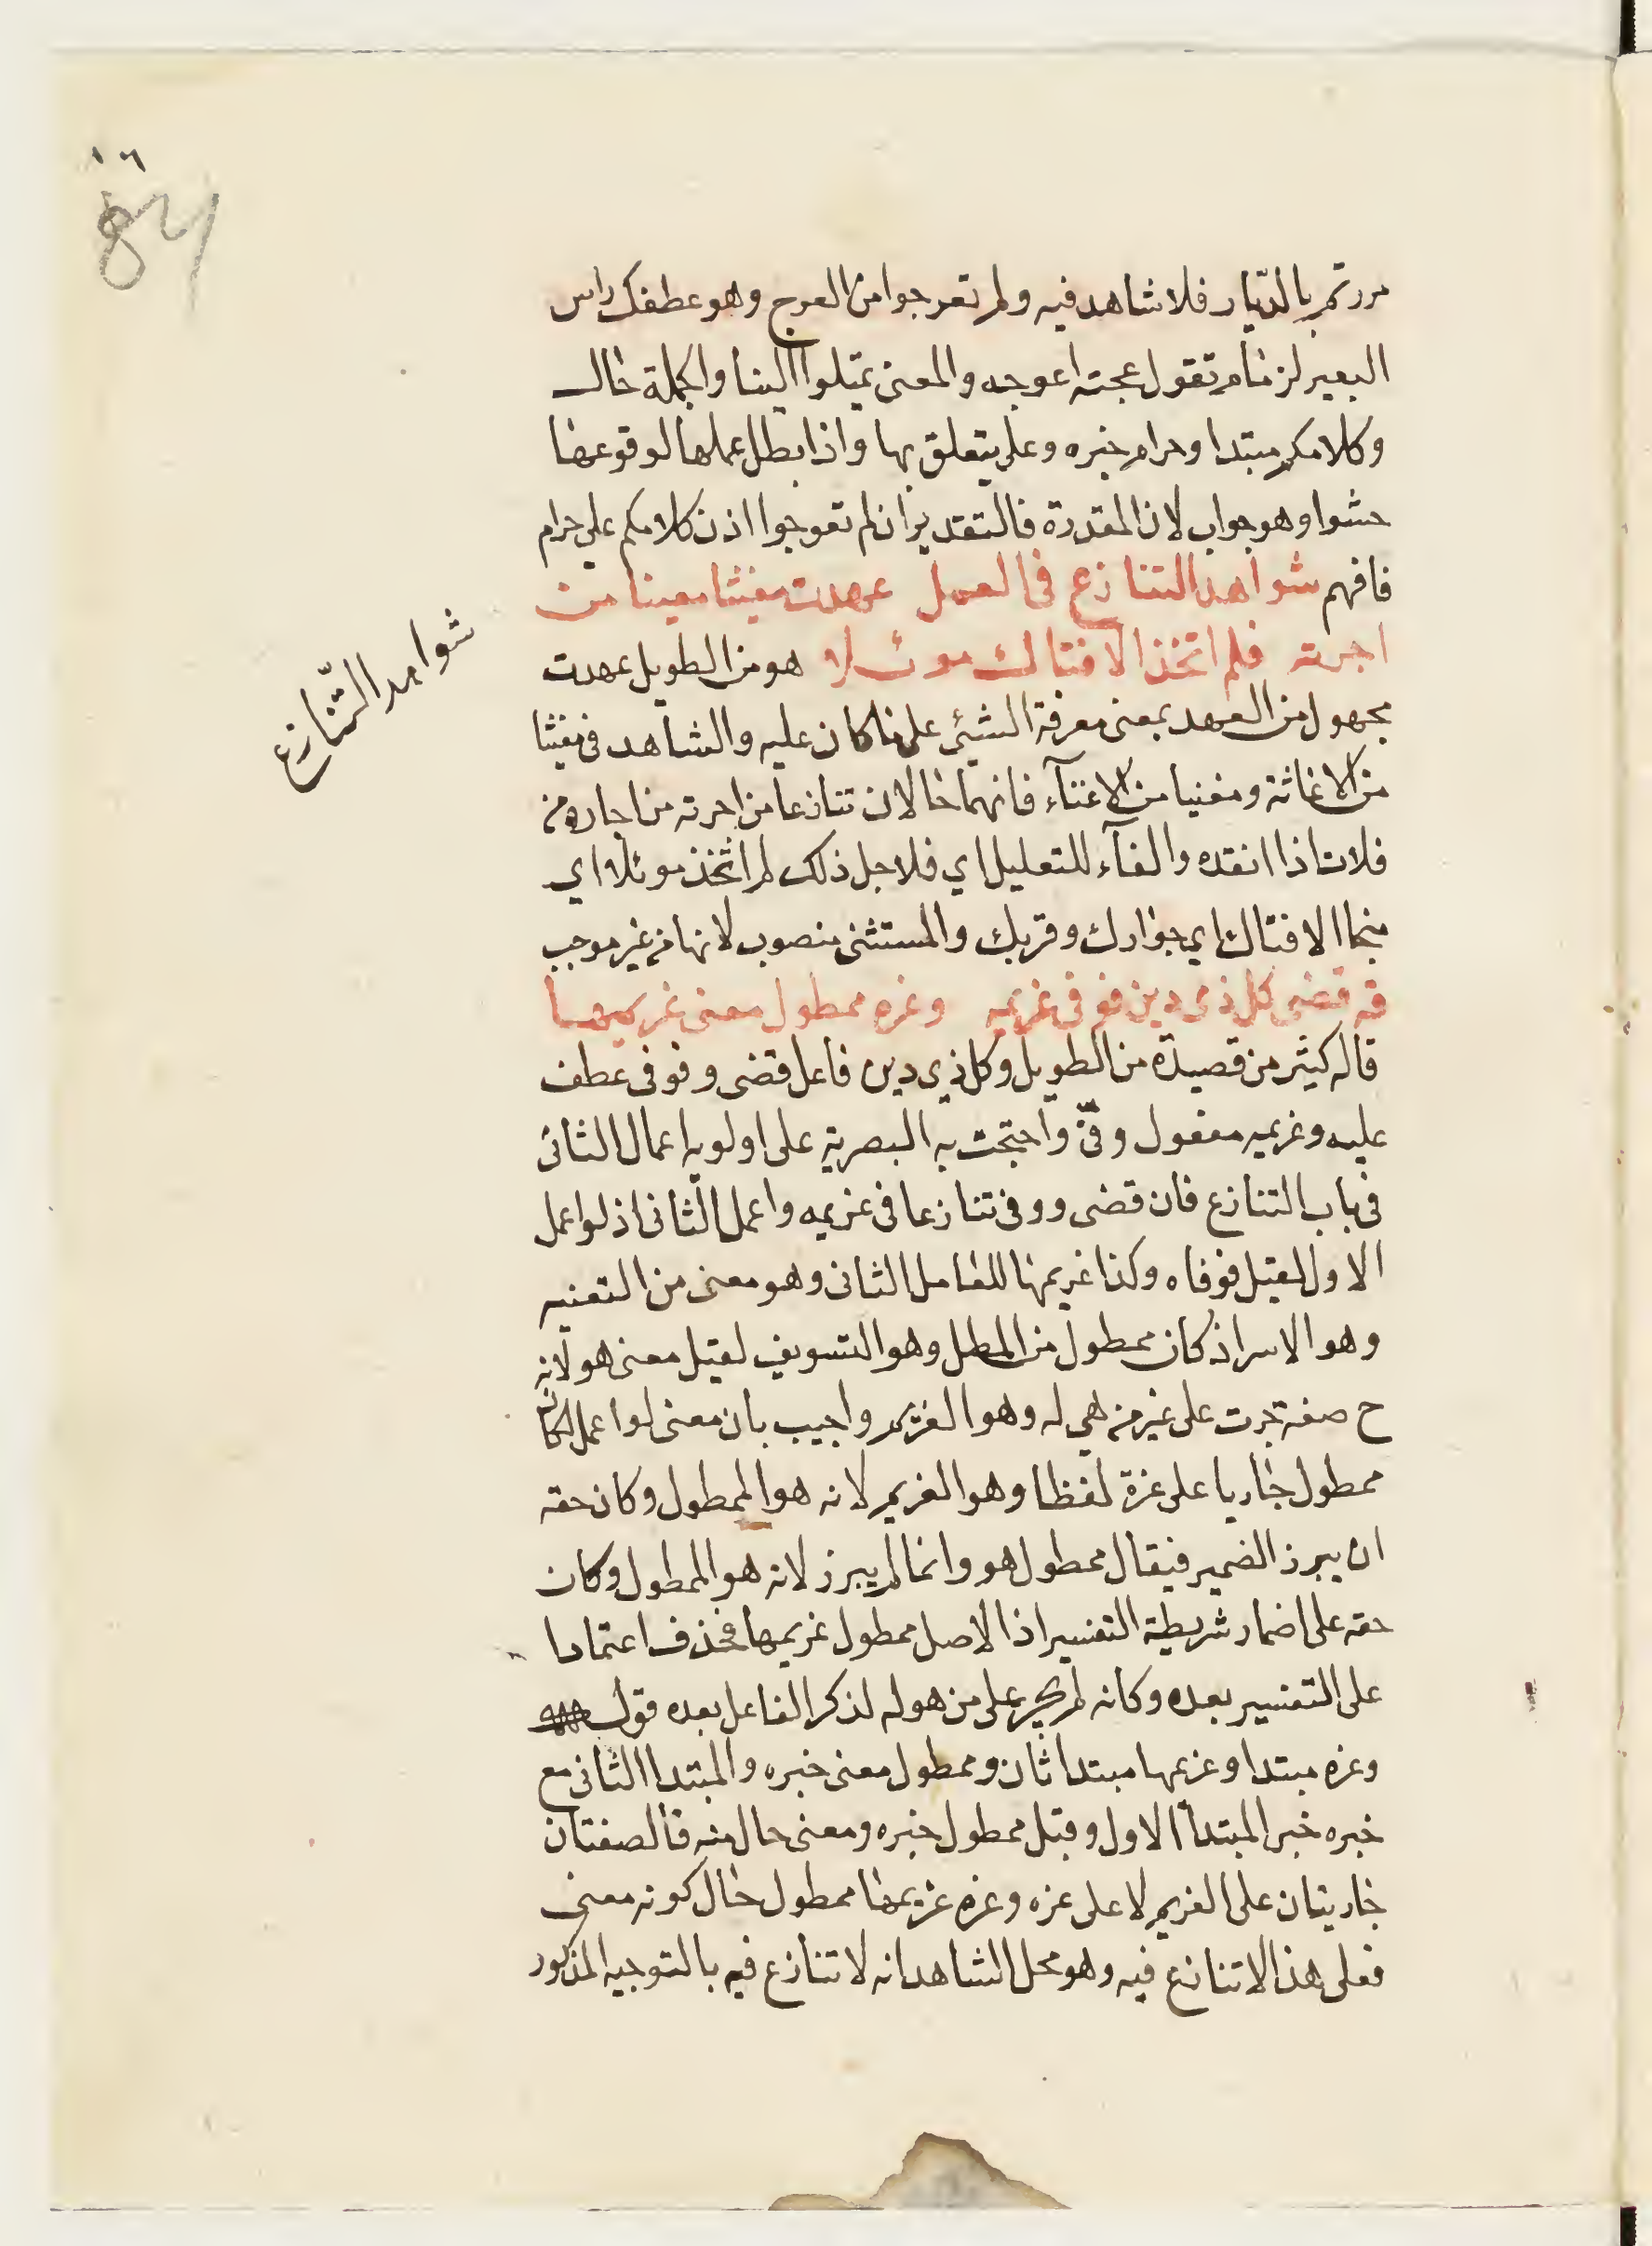 مررتم بالديار فلا شاهد فيه ولم تعوجوا من العوج وهو عطفك راس
البعير لزمام تقول عجته اعوجه والمعنى تميلوا الينا والجملة حال
وكلامكم مبتدا وحرام خبره وعلى يتعلق بها واذا بطل عملها لوقوعها
حشوا وهو جواب لان المقدرة فالتقدير ان لم تعوجوا اذن كلامكم على حرام
فافهم شواهد التنازع فى العمل عهدت مغيثا مغنيا من
اجرته فلم اتخذ الا فنائك موئلا هو من الطويل عهدت
مجهول من العهد بمعنى معرفة الشئ على ما كان عليه والشاهد فى مغيثا
من الاغاثة ومغنيا من الاغناء فانهما حالان تنازعا من اجرته من اجاره من
فلان اذا انقذه والفآء للتعليل اي فلاجل ذلك لم اتخذ موئلا اي
منجا الا فنائك اي جوارك وقربك والمستثنى منصوب لانها من غير موجب
قه قضى كل ذى دين فوفى غريمه وعزه ممطول معنى غريمها
قاله كثير من قصيدة من الطويل وكل ذي دين فاعل قضى وفوفى عطف
عليه وغريمه مفعول وفى واحتجت به البصرية على اولوية اعمال الثانى
فى باب التنازع فان قضى ووفى تنازعا فى غريمه واعمل الثانى اذ لو اعمل
الاول لقيل فوفاه وكذا غريمها للعامل الثانى وهو معنى من التعنيه
وهو الاسر اذ كان ممطول من المطل وهو التسويف لقيل معنى هو لانه
ح صفة جرت على غير من هي له وهو الغريم واجيب بان معنى لو اعمل لكان
ممطول جاريا على عزة لفظا وهو الغريم لانه هو الممطول وكان حقه
ان يبرز الضمير فيقال ممطول هو وانما لم يبرز لانه هو الممطول وكان
حقه على اضمار شريطة التفسير اذ الاصل ممطول غريمها فحذف اعتمادا
على التفسير بعده وكانه لم يجر على من هو له لذكر الفاعل بعده قوله
وعزه مبتدا وغريمها مبتدا ثان وممطول معنى خبره والمبتدا الثانى مع
خبره خبر المبتدأ الاول وقيل ممطول خبره ومعنى حال منه فالصفتان
جاريتان على الغريم لا على عزه وعزه غريمها ممطول حال كونه معنى
فعلى هذا لا تنازع فيه وهو محل الشاهد انه لا تنازع فيه بالتوجيه المذكور
شواهد التّنازع